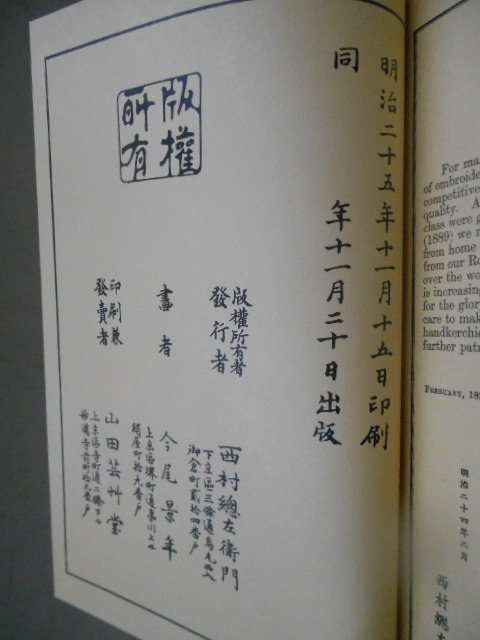 明治二十五年十一月十五日印刷
同 年十一月二十日出版
版權
所有
版權所有者
發行者
西村總左衞門
下京區三條通烏丸西入
御倉町貳拾四番戸
畫者
今尾景年
上京區
拾九番戸
印刷兼
發賣者
山田芸艸堂
上京區寺町通二條
For ma
of embroide
competitive
quality. A
class were g
(1889) we r
from home
from our Ro
over the wo
is increasing
for the glor
care to mak
handkerchie
further patr
FEBRUARY, 189
明治二十四年二月
西村總